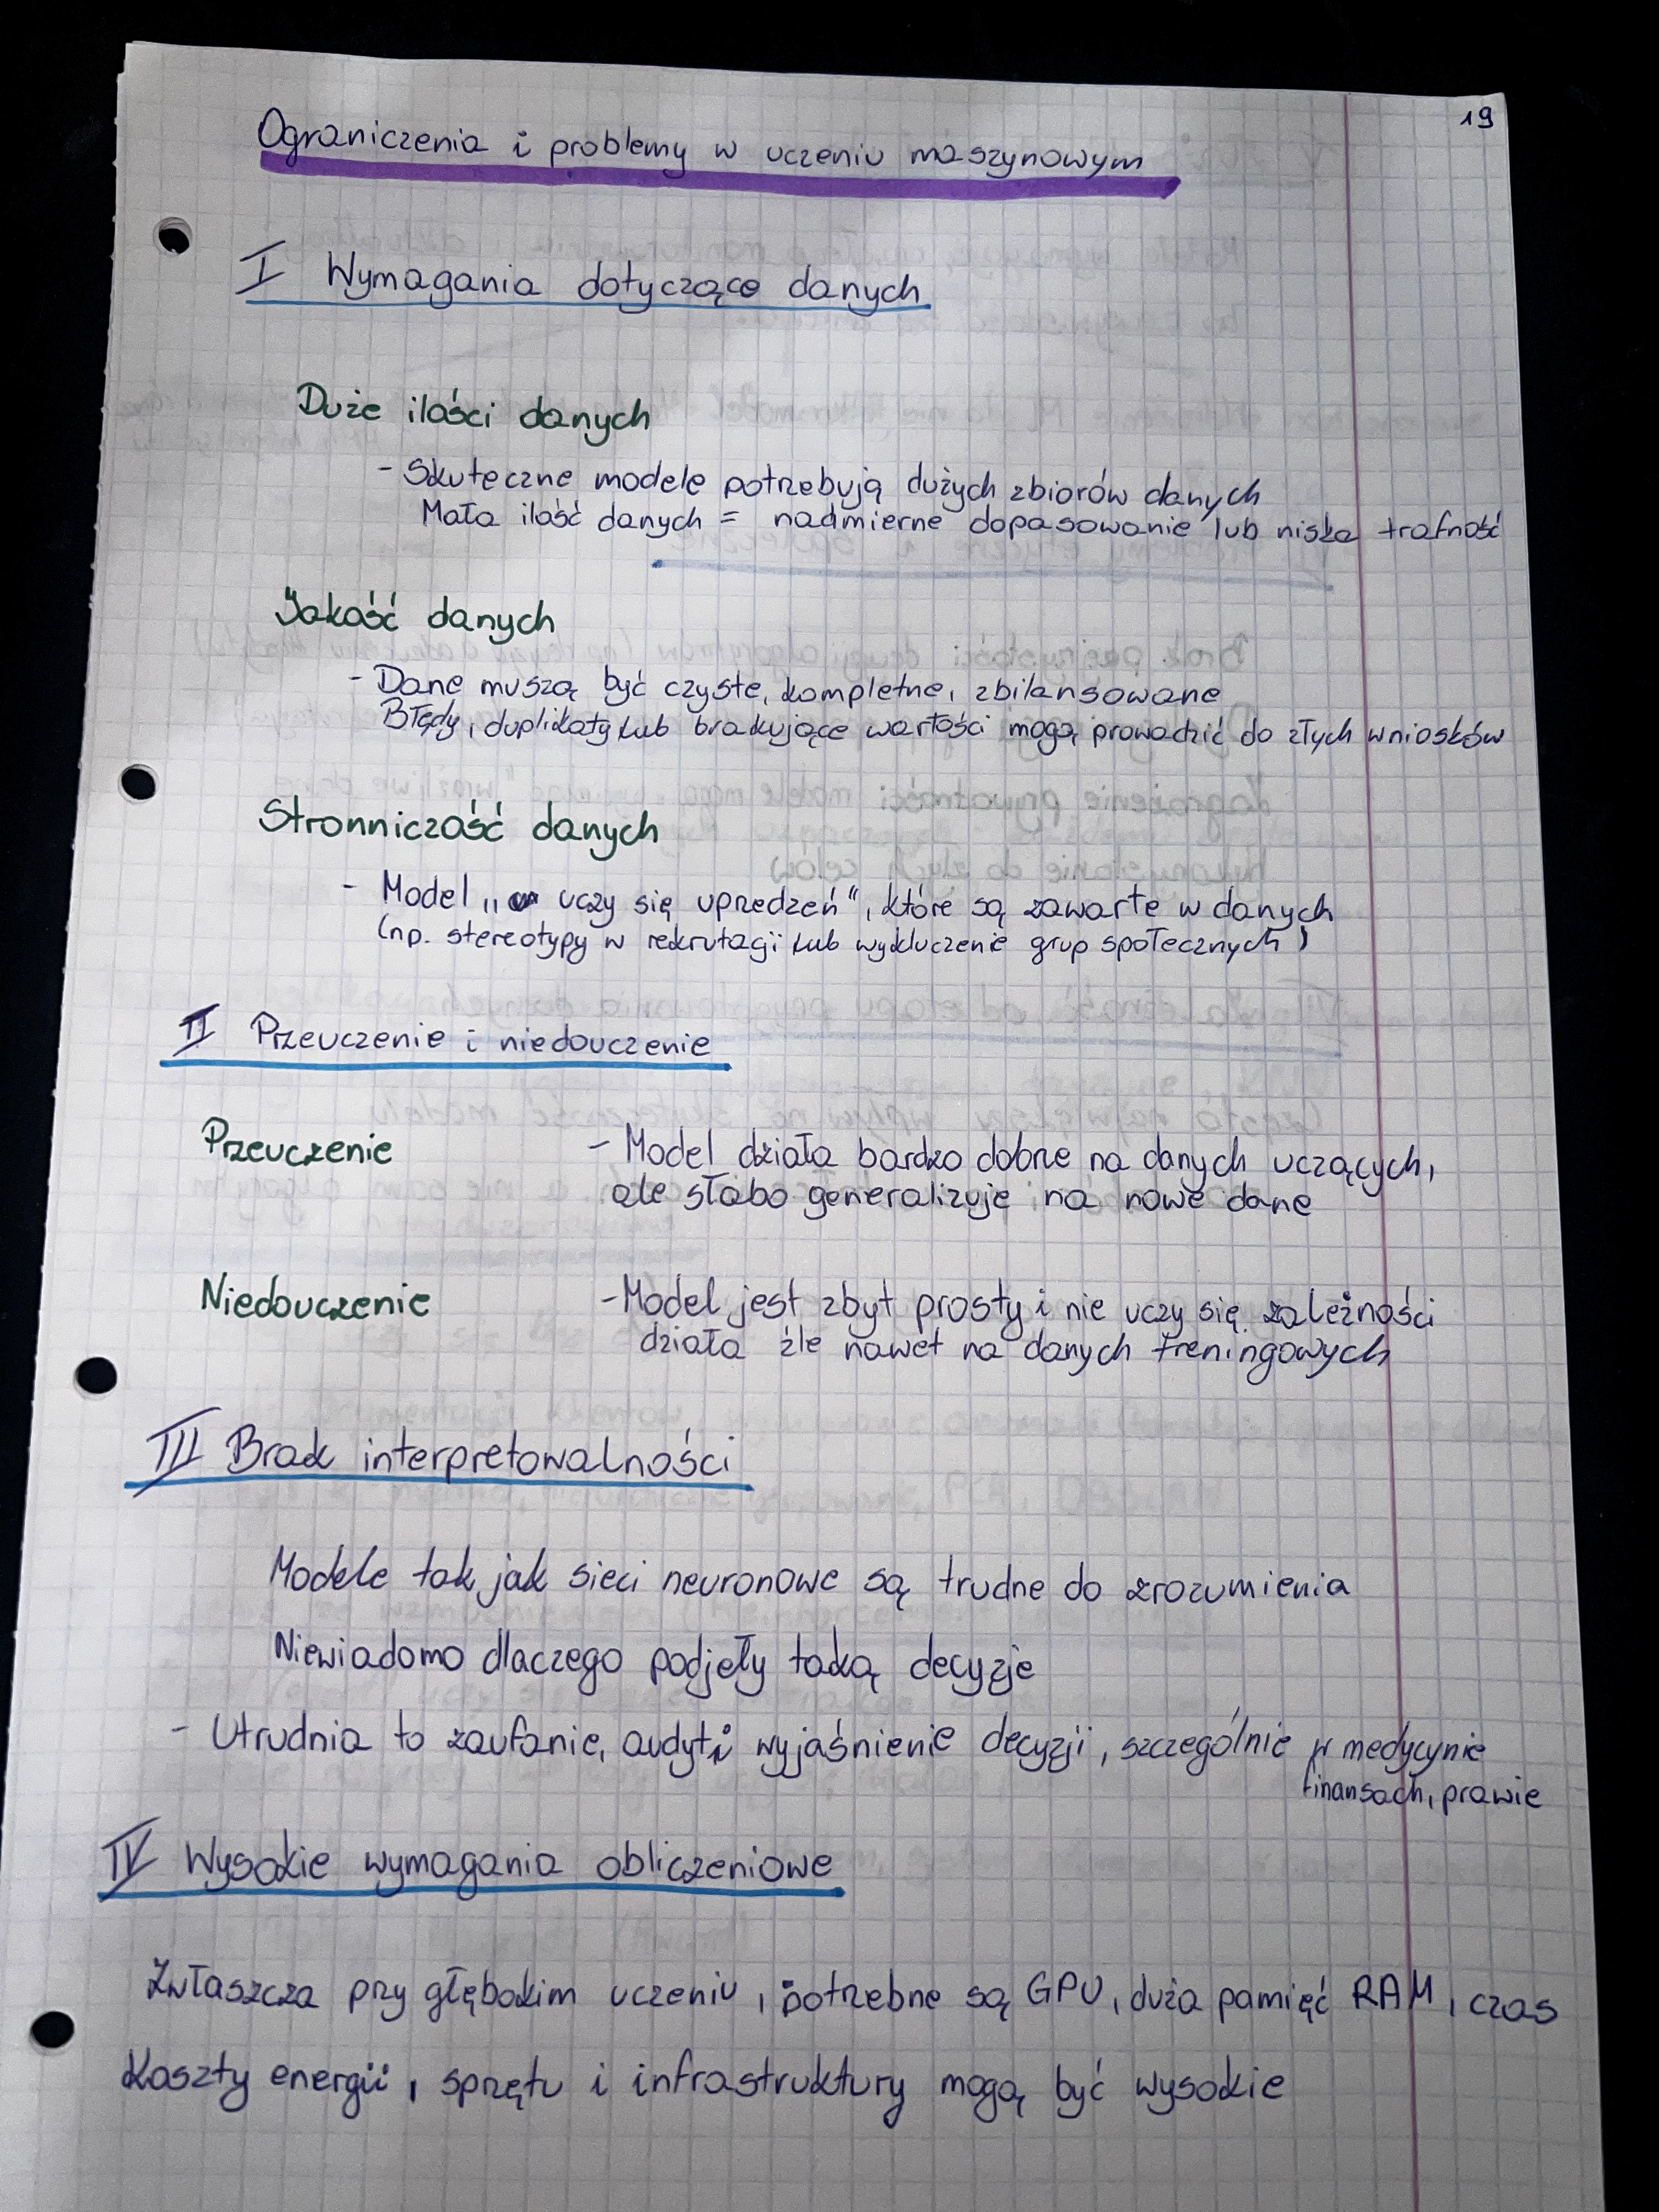 19
Ograniczenia i problemy w uczeniu maszynowym
I Wymagania dotyczące danych
Duże ilości danych
- Skuteczne modele potrzebują dużych zbiorów danych
Mała ilość danych = nadmierne dopasowanie lub niska trafność
Jakość danych
- Dane muszą być czyste, kompletne, zbilansowane
Błędy, duplikaty lub brakujące wartości mogą prowadzić do złych wniosków
Stronniczość danych
- Model „uczy się uprzedzeń", które są zawarte w danych
(np. stereotypy w rekrutacji lub wykluczenie grup społecznych)
II Przeuczenie i niedouczenie
Przeuczenie - Model działa bardzo dobrze na danych uczących,
ale słabo generalizuje na nowe dane
Niedouczenie - Model jest zbyt prosty i nie uczy się zależności
działa źle nawet na danych treningowych
III Brak interpretowalności
Modele tak jak sieci neuronowe są trudne do zrozumienia
Niewiadomo dlaczego podjeły taką decyzje
- Utrudnia to zaufanie, audyt i wyjaśnienie decyzji, szczególnie w medycynie
finansach, prawie
IV Wysokie wymagania obliczeniowe
Zwłaszcza przy głębokim uczeniu, potrzebne są GPU, duża pamięć RAM, czas
Koszty energii, sprzętu i infrastruktury mogą być wysokie